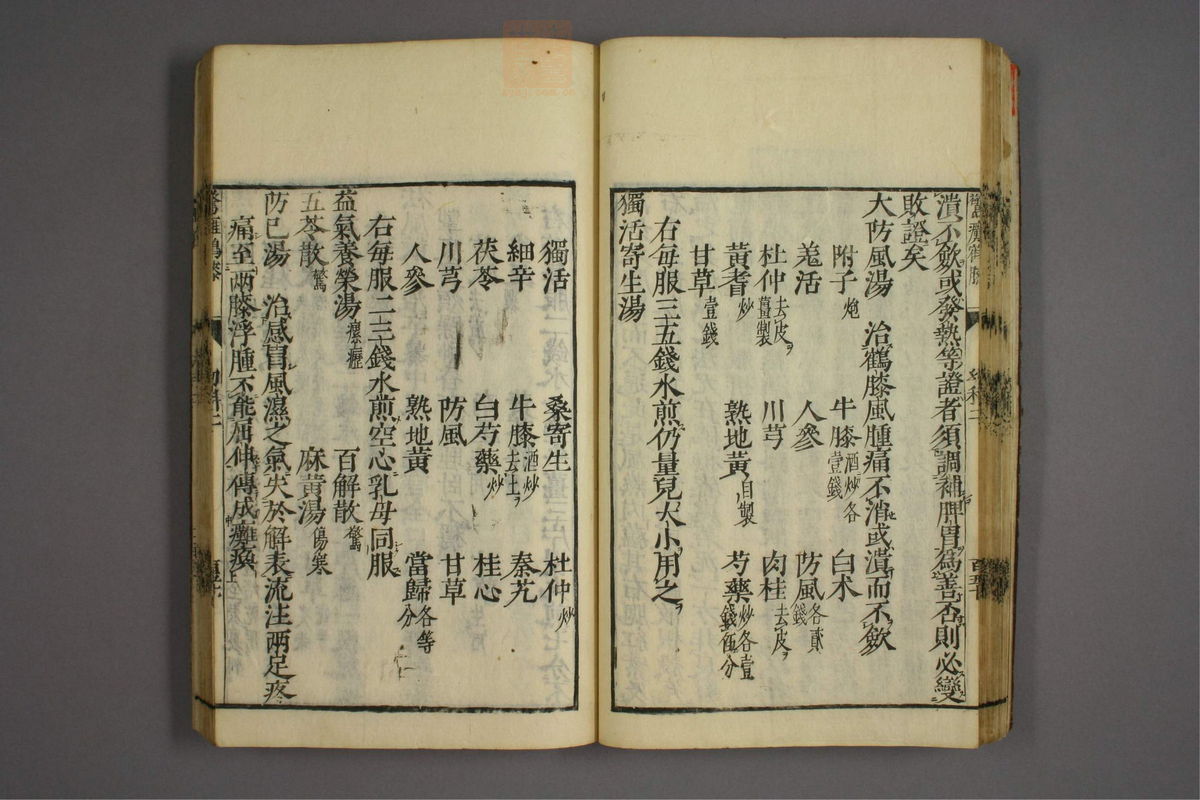 潰不歛或發熱等證者須調補脾胃爲善否則必變
敗證矣
大防風湯　治鶴膝風腫痛不消或潰而不歛
附子炮　牛膝酒炒各壹錢　白术
羗活　人參　防風各貳錢
杜仲去皮薑製　川芎　肉桂去皮
黃耆炒　熟地黃自製　芍藥炒各壹錢伍分
甘草壹錢
右每服三五錢水煎仍量兒大小用之
獨活寄生湯
獨活　桑寄生　杜仲炒
細辛　牛膝酒炒去土　秦艽
茯苓　白芍藥炒　桂心
川芎　防風　甘草
人參　熟地黃　當歸各等分
右每服二三錢水煎空心乳母同服
益氣養榮湯瘰癧　百解散驚
五苓散驚　麻黃湯傷寒
防已湯　治感冒風濕之氣失於解表流注兩足疼
痛至兩膝浮腫不能屈伸傳成癱瘓